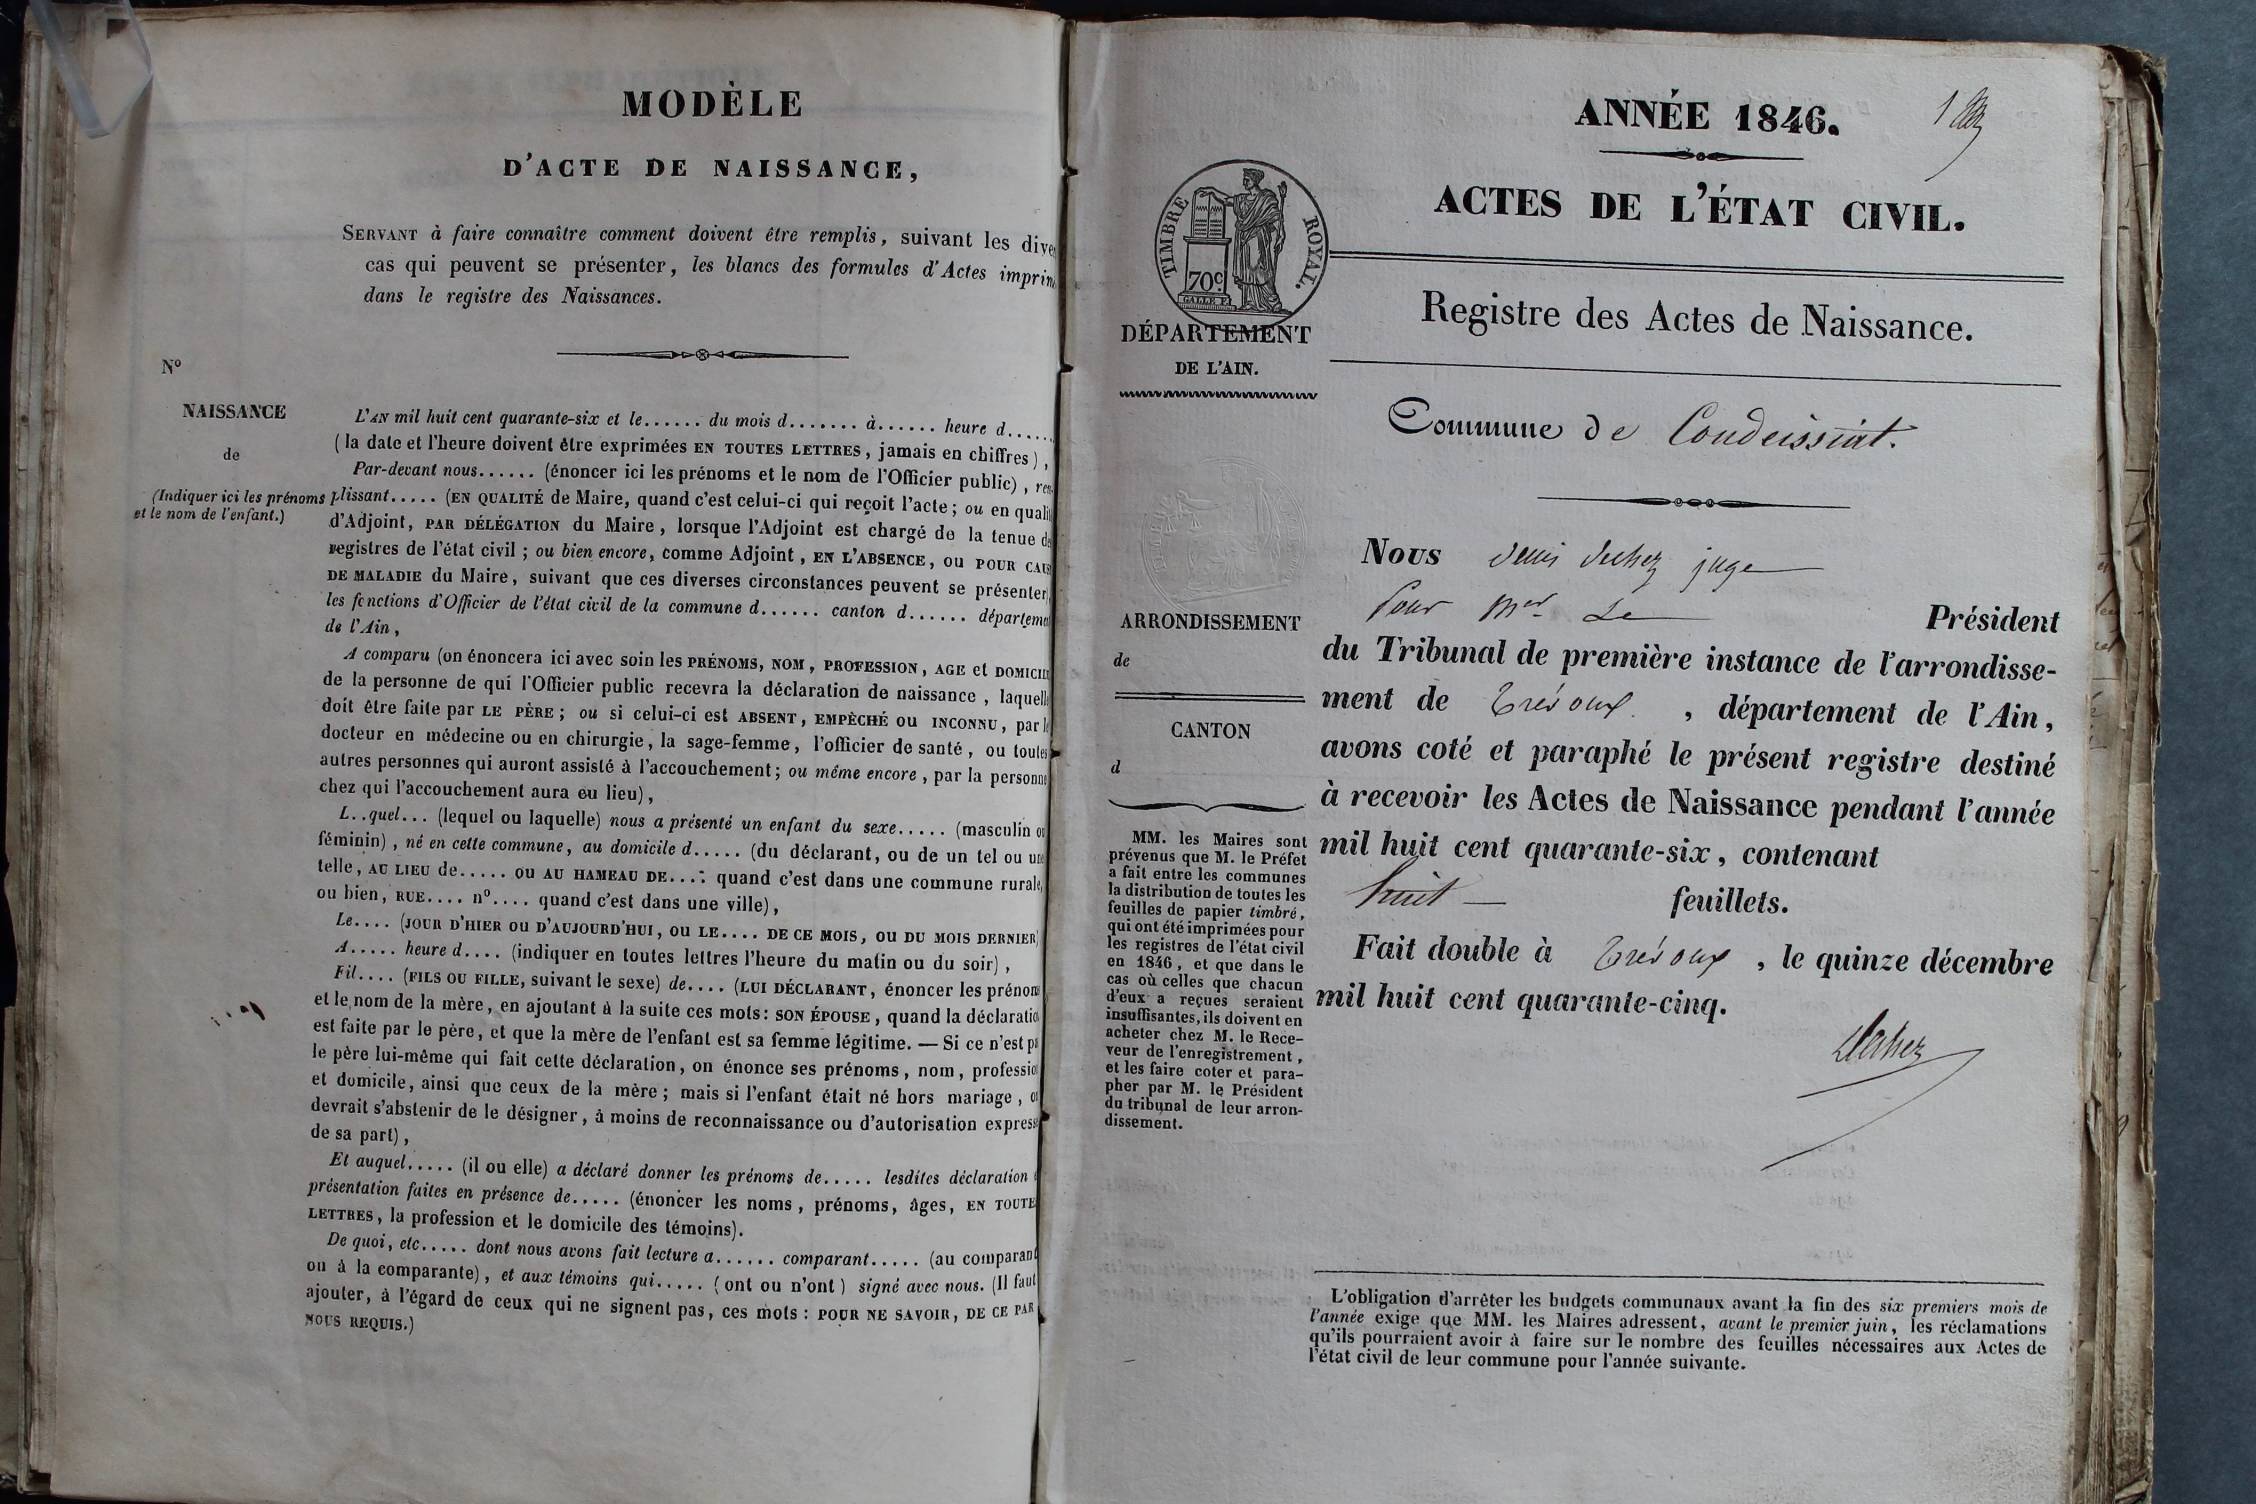 MODÈLE
D'ACTE DE NAISSANCE,
SERVANT à faire connaître comment doivent être remplis, suivant les dive
cas qui peuvent se présenter, les blancs des formules d'Actes imprim
dans le registre des Naissances.
Nº
NAISSANCE
de
(Indiquer ici les prénoms
et le nom de l'enfant.)
L'AN mil huit cent quarante-six et le...... du mois d....... à...... heure d......
(la date et l'heure doivent être exprimées EN TOUTES LETTRES, jamais en chiffres),
Par-devant nous...... (énoncer ici les prénoms et le nom de l'Officier public), rem
plissant..... (EN QUALITÉ de Maire, quand c'est celui-ci qui reçoit l'acte; ou en qualit
d'Adjoint, PAR DÉLÉGATION du Maire, lorsque l'Adjoint est chargé de la tenue de
registres de l'état civil; ou bien encore, comme Adjoint, EN L'ABSENCE, OU POUR CAUS
DE MALADIE du Maire, suivant que ces diverses circonstances peuvent se présenter)
les fonctions d'Officier de l'état civil de la commune d...... canton d...... départemen
de l'Ain,
A comparu (on énoncera ici avec soin les PRÉNOMS, NOM, PROFESSION, AGE et DOMICILE
de la personne de qui l'Officier public recevra la déclaration de naissance, laquelle
doit être faite par LE PÈRE; ou si celui-ci est ABSENT, EMPÈCHÉ OU INCONNU, par le
docteur en médecine ou en chirurgie, la sage-femme, l'officier de santé, ou toutes
autres personnes qui auront assisté à l'accouchement; ou même encore, par la personne
chez qui l'accouchement aura eu lieu),
L..quel... (lequel ou laquelle) nous a présenté un enfant du sexe..... (masculin ou
féminin), né en cette commune, au domicile d..... (du déclarant, ou de un tel ou une
telle, AU LIEU de..... OU AU HAMEAU DE.... quand c'est dans une commune rurale,
ou bien, RUE.... nº.... quand c'est dans une ville),
Le.... (JOUR D'HIER OU D'AUJOURD'HUI, OU LE.... DE CE MOIS, OU DU MOIS DERNIER)
A..... heure d.... (indiquer en toutes lettres l'heure du matin ou du soir),
Fil.... (FILS OU FILLE, suivant le sexe) de.... (LUI DÉCLARANT, énoncer les prénoms
et le nom de la mère, en ajoutant à la suite ces mots: SON ÉPOUSE, quand la déclaratio
est faite par le père, et que la mère de l'enfant est sa femme légitime. — Si ce n'est pa
le père lui-même qui fait cette déclaration, on énonce ses prénoms, nom, professio
et domicile, ainsi que ceux de la mère; mais si l'enfant était né hors mariage, o
devrait s'abstenir de le désigner, à moins de reconnaissance ou d'autorisation expresse
de sa part),
Et auquel..... (il ou elle) a déclaré donner les prénoms de..... lesdites déclaration
présentation faites en présence de..... (énoncer les noms, prénoms, âges, EN TOUTE
LETTRES, la profession et le domicile des témoins).
De quoi, etc..... dont nous avons fait lecture a...... comparant..... (au comparant
ou à la comparante), et aux témoins qui..... (ont ou n'ont) signé avec nous. (Il faut
ajouter, à l'égard de ceux qui ne signent pas, ces mots: POUR NE SAVOIR, DE CE PAR
NOUS REQUIS.)
ANNÉE 1846.
1
ACTES DE L'ÉTAT CIVIL.
TIMBRE ROYAL.
70c.
DÉPARTEMENT
DE L'AIN.
Registre des Actes de Naissance.
Commune de Condeissiat.
ARRONDISSEMENT
de
CANTON
d
MM. les Maires sont
prévenus que M. le Préfet
a fait entre les communes
la distribution de toutes les
feuilles de papier timbré,
qui ont été imprimées pour
les registres de l'état civil
en 1846, et que dans le
cas où celles que chacun
d'eux a reçues seraient
insuffisantes, ils doivent en
acheter chez M. le Rece-
veur de l'enregistrement,
et les faire coter et para-
pher par M. le Président
du tribunal de leur arron-
dissement.
Nous denis duchez juge
Pour Mr Le Président
du Tribunal de première instance de l'arrondisse-
ment de Trévoux, département de l'Ain,
avons coté et paraphé le présent registre destiné
à recevoir les Actes de Naissance pendant l'année
mil huit cent quarante-six, contenant
huit feuillets.
Fait double à Trévoux, le quinze décembre
mil huit cent quarante-cinq.
Duchez
L'obligation d'arrêter les budgets communaux avant la fin des six premiers mois de
l'année exige que MM. les Maires adressent, avant le premier juin, les réclamations
qu'ils pourraient avoir à faire sur le nombre des feuilles nécessaires aux Actes de
l'état civil de leur commune pour l'année suivante.